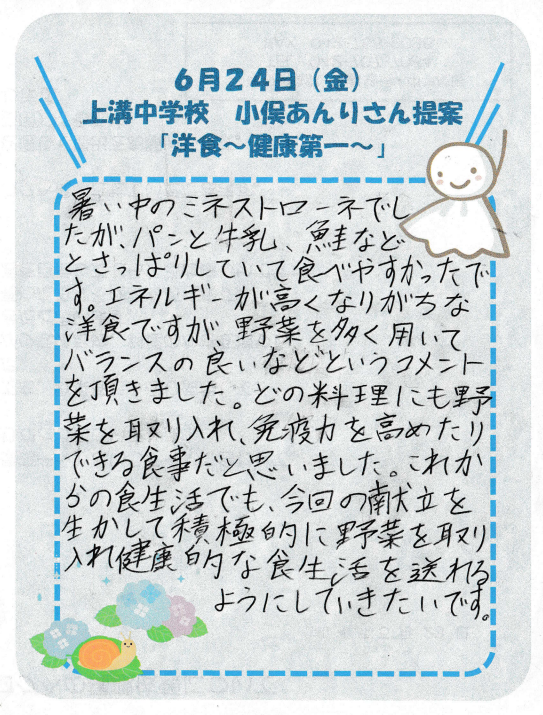 6月24日（金）
上溝中学校　小俣あんりさん提案
「洋食～健康第一～」
暑い中のミネストローネでし
たが、パンと牛乳、鮭など
とさっぱりしていて食べやすかったで
す。エネルギーが高くなりがちな
洋食ですが、野菜を多く用いて
バランスの良いなどというコメント
を頂きました。どの料理にも野
菜を取り入れ、免疫力を高めたり
できる食事だと思いました。これか
らの食生活でも、今回の献立を
生かして積極的に野菜を取り
入れ健康的な食生活を送れる
ようにしていきたいです。